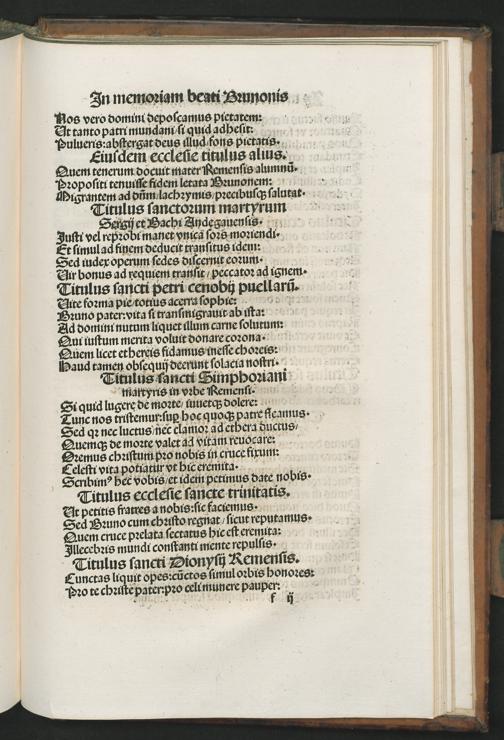 In memoriam beati Brunonis
Nos vero domini deposcamus pietatem:
Ut tanto patri mundani si quid adhesit:
Pulueris: abstergat deus illud fons pietatis.
Eiusdem ecclesie titulus alius.
Quem tenerum docuit mater Remensis alumnū.
Propositi tenuisse fidem letata Brunonem:
Migrantem ad dn̄m/ lachrymis/ precibusqꝫ salutat.
Titulus sanctorum martyrum
Sergij et Bachi Andegauensis.
Justi vel reprobi manet vnica sors moriendi.
Et simul ad finem deducit transitus idem:
Sed iudex operum sedes discernit eorum.
Vir bonus ad requiem transit/ peccator ad ignem.
Titulus sancti petri cenobij puellarū.
Vite forma pie/ totius acerra sophie:
Bruno pater: vita si transmigrauit ab ista:
Ad domini nutum liquet illum carne solutum:
Qui iustum merita voluit donare corona.
Quem licet ethereis fidamus inesse choreis:
Haud tamen obsequij deerunt solacia nostri.
Titulus sancti Simphoriani
martyris in vrbe Remensi.
Si quid lugere de morte/ iuuetqꝫ dolere:
Tunc nos tristemur: sup hoc quoqꝫ patre fleamus.
Sed qr nec luctus/ nec clamor ad ethera ductus/
Quemqꝫ de morte valet ad vitam reuocare:
Oremus christum pro nobis in cruce fixum:
Celesti vita potiatur vt hic eremita.
Scribimꝰ hec vobis/ et idem petimus date nobis.
Titulus ecclesie sancte trinitatis.
Ut petitis fratres a nobis: sic faciemus.
Sed Bruno cum christo regnat/ sicut reputamus.
Quem cruce prelata sectatus hic est eremita:
Illecebris mundi constanti mente repulsis.
Titulus sancti Dionysij Remensis.
Cunctas liquit opes: cūctos simul orbis honores:
Pro te christe pater: pro celi munere pauper:
f ij